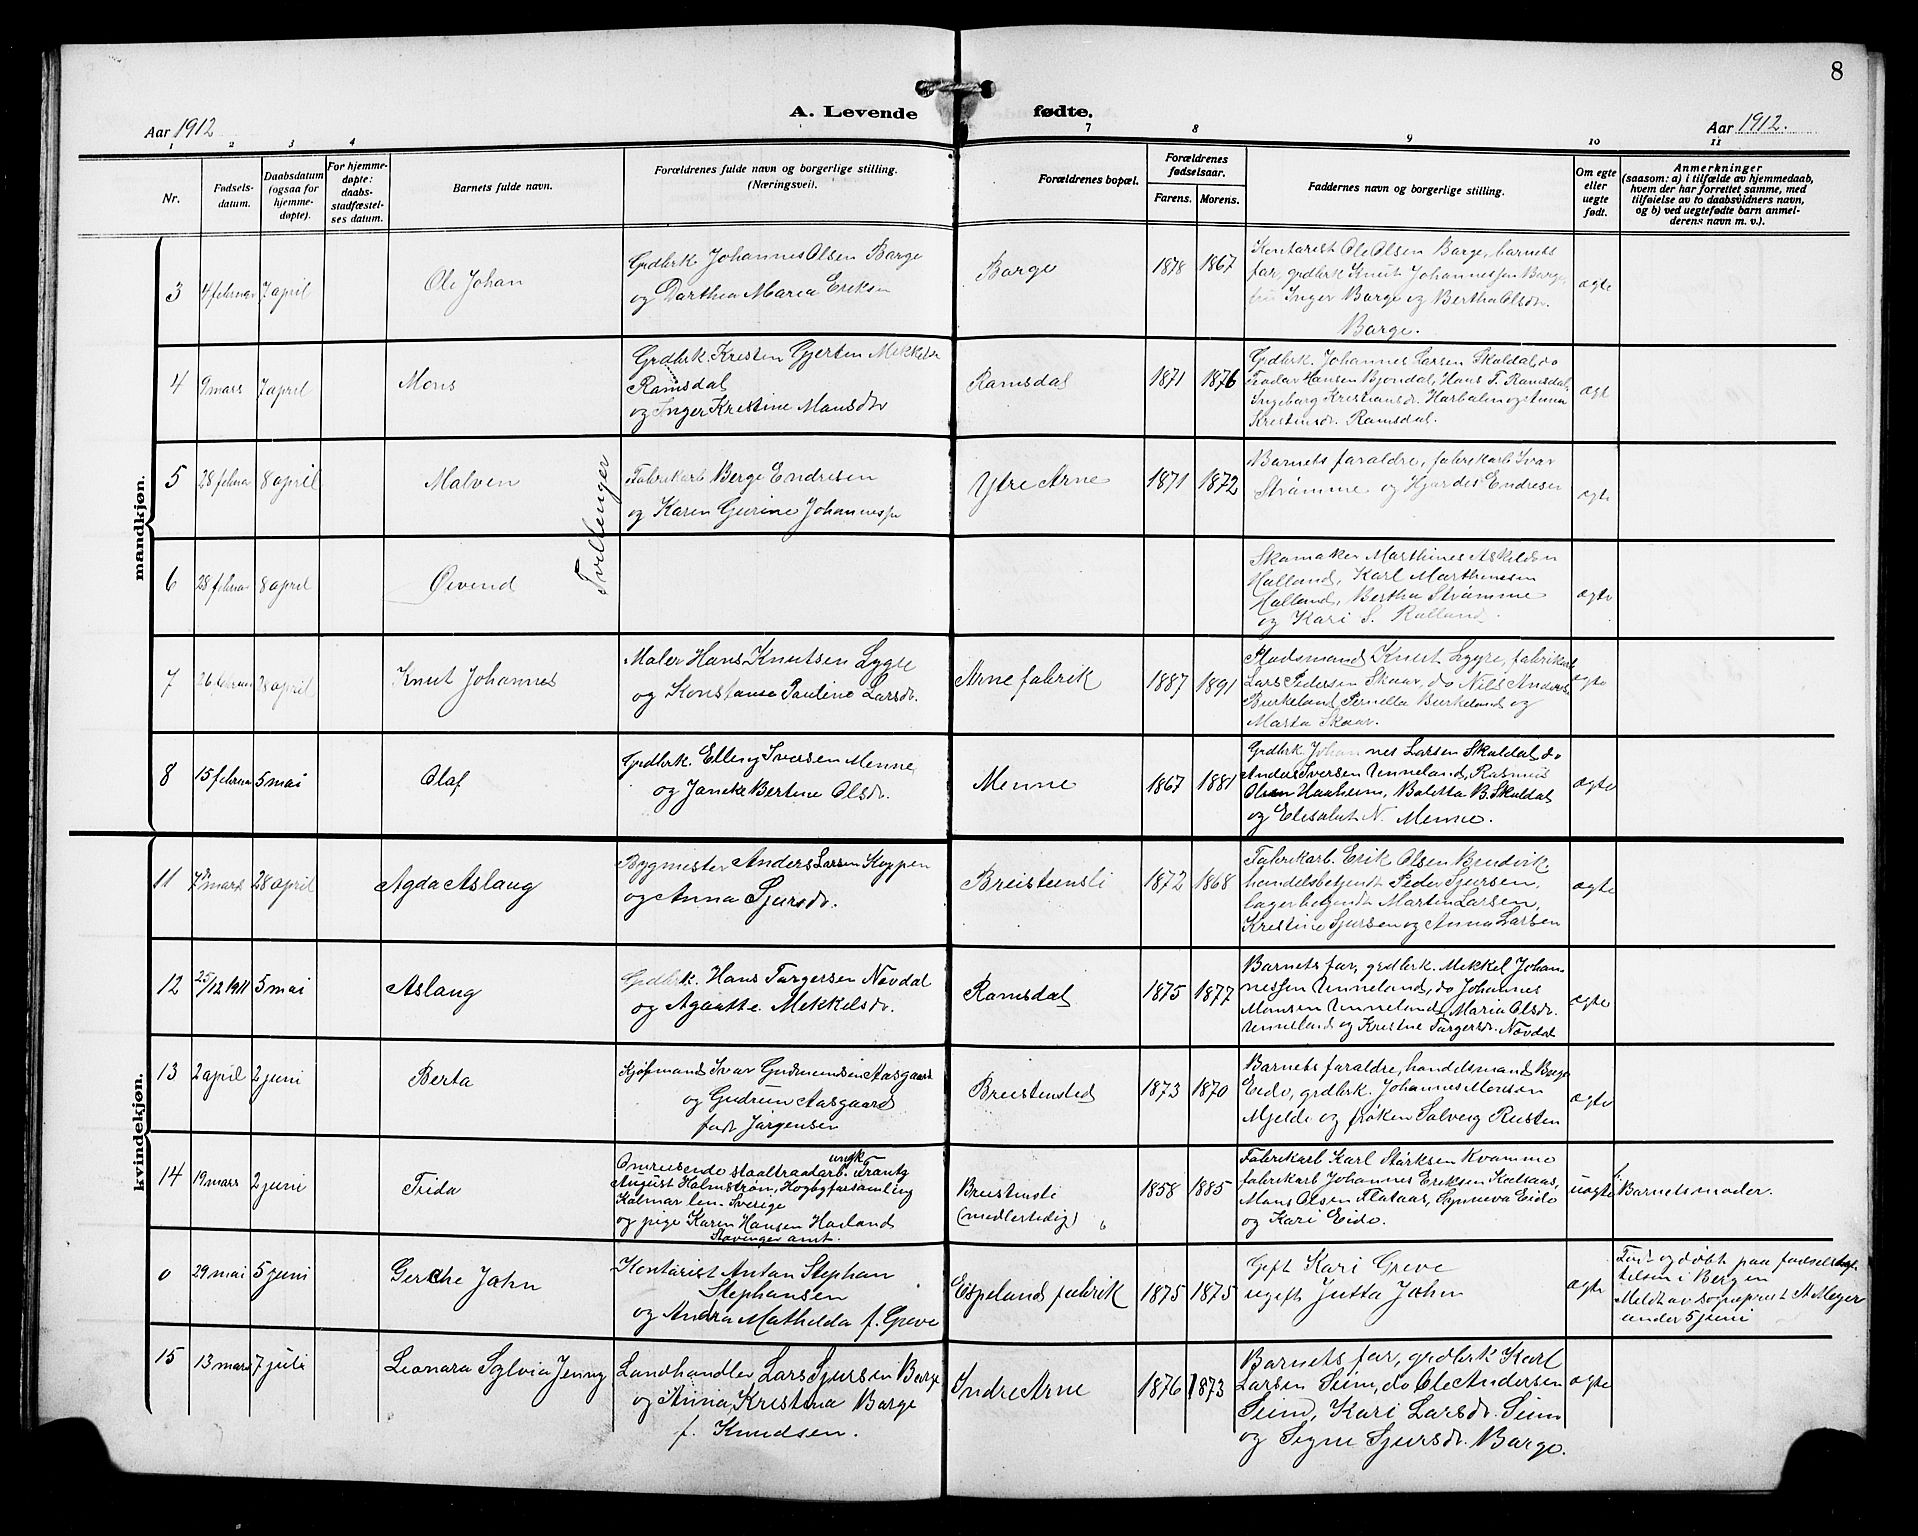 8
A. Levende fødte.
Aar 1912
Aar 1912.
1 2 3 4 7 8 9 10 11
Nr.
Fødsels-
datum.
Daabsdatum
(ogsaa for
hjemme-
døpte).
For hjemme-
døpte:
daabs-
stadfæstel-
ses datum.
Barnets fulde navn.
Forældrenes fulde navn og borgerlige stilling.
(Næringsvei).
Forældrenes bopæl.
Forældrenes
fødselsaar.
Farens. Morens.
Faddernes navn og borgerlige stilling.
Om egte
eller
uegte
født.
Anmerkninger
(saasom: a) i tilfælde av hjemmedaab,
hvem der har forrettet samme, med
tilføielse av to daabsvidners navn,
og b) ved uegtefødte barn anmel-
derens navn m. v.).
mandkjøn.
3 4 februar 7 april Ole Johan
Grdbrk Johannes Olsen Borge
og Dorthea Maria Eriksen
Borge 1878 1867
Kontorist Ole Olsen Borge, barnets
far, grdbrk Knut Johannessen Borge
fru Inger Borge og Bertha Olsdr.
Borge.
ægte
4 9 mars 7 april Mons
Grdbrk. Kristen Gjerten Mikkelsen
Ramsdal
og Inger Kristine Monsdtr
Ramsdal 1871 1876
Grdbrk. Johannes Larsen Skuldal, do
Teodor Hansen Bjondal, Hans T. Ramsdal,
Ingeborg Kristiansdr. Horbalen og Anna
Kristensdr. Ramsdal.
ægt
5 28 februar 8 april Malven
Tvillinger
Fabrikarb Berge Endresen
og Karen Gurine Johannesdr
Ytre Arne 1871 1872
Barnets foraldre, fabrikarb Ivar
Strømme og Hjordis Endresen
ægte
6 28 februar 8 april Øivend
Skomaker Marthines Askildsen
Halland, Karl Marthinssen
Halland, Bertha Strømme
og Kari S. Rolland.
ægte
7 26 februar 28 april Knut Johannes
Maler Hans Knutsen Lygre
og Konstanse Pauline Larsdr.
Arne fabrik 1887 1891
Pladsmand Knut Lygre, fabrikarb
Lars Pedersen Skaar, do Nils Anders.
Birkeland Pernella Birkeland og
Marta Skaar.
ægte
8 15 februar 5 mai Olaf
Grdbrk. Elling Iversen Menne
og Janike Bertine Olsdr.
Menne 1867 1881
Grdbrk Johannes Larsen Skuldal, do
Anders Iversen Unneland, Rasmus
Olsen Haaheim, Boletta B. Skuldal
og Elisabet N. Menne.
ægte
kvindekjøn.
11 7de mars 28 april Agda Aslaug
Bygmester Anders Larsen Koppen
og Anna Sjursdr.
Breisteinsli 1872 1868
Fabrikarb. Erik Olsen Brudvik
handelsbetjent Peder Sjursen,
lagerbetjent Martin Larsen,
Kristine Sjursen og Anna Larsen
ægte
12 25/12 1911 5 mai Aslaug
Grdbrk. Hans Torgersen Novdal
og Agaathe Mikkelsdr.
Ramsdal 1875 1877
Barnets far, grdbrk. Mikkel Johan-
nessen Unneland, do Johannes
Monsen Unneland, Maria Olsdr.
Unneland og Kristne Torgersdr. Novdal
ægte
13 2 april 2 juni Berta
Kjøpmand Ivar Gudmundsen Aasgaard
og Gudrun Aasgaard
født Jørgensen
Breistensted 1873 1870
Barnets foraldre, handelsmand Borge
Eide, grdbrk. Johannes Monsen
Mjelde og frøken Solveig Reisten
ægte
14 19 mars 2 juni Frida
Omreisende staaltraadarb. ungk. Frantz
August Halmstrøm, Hogbyforsamling
Kalmar len Sverige
og pige Karen Hansen Hauland
Stavanger amt.
Breistensli
(midlertidig) 1858 1885
Fabrikarb Karl Størksen Kvamme
fabrikarb Johannes Eriksen Kalsaas,
Mons Olsen Flataas, Synneva Eide
og Kari Eide.
uægte Barnets moder.
0 29 mai 5 juni Gerche John
Kontorist Anton Stephan
Stephansen
og Andra Mathilda f. Greve
Espeland fabrik 1875 1875
Gift Kari Greve
ugift Jutta John
ægte
Født og døbt paa fødselsstif-
telsen i Bergen
Meldt av sogneprest A Meyer
under 5 juni
15 13 mars 7 juli Leonora Sylvia Jenny
Landhandler Lars Sjursen Borge
og Anna Kristina Borge
f. Knudsen.
Indre Arne 1876 1873
Barnets far, grdbrk Karl
Larsen Seim, do Ole Andersen
Seim, Kari Larsdr. Seim
og Signe Sjursdr. Borge.
ægte